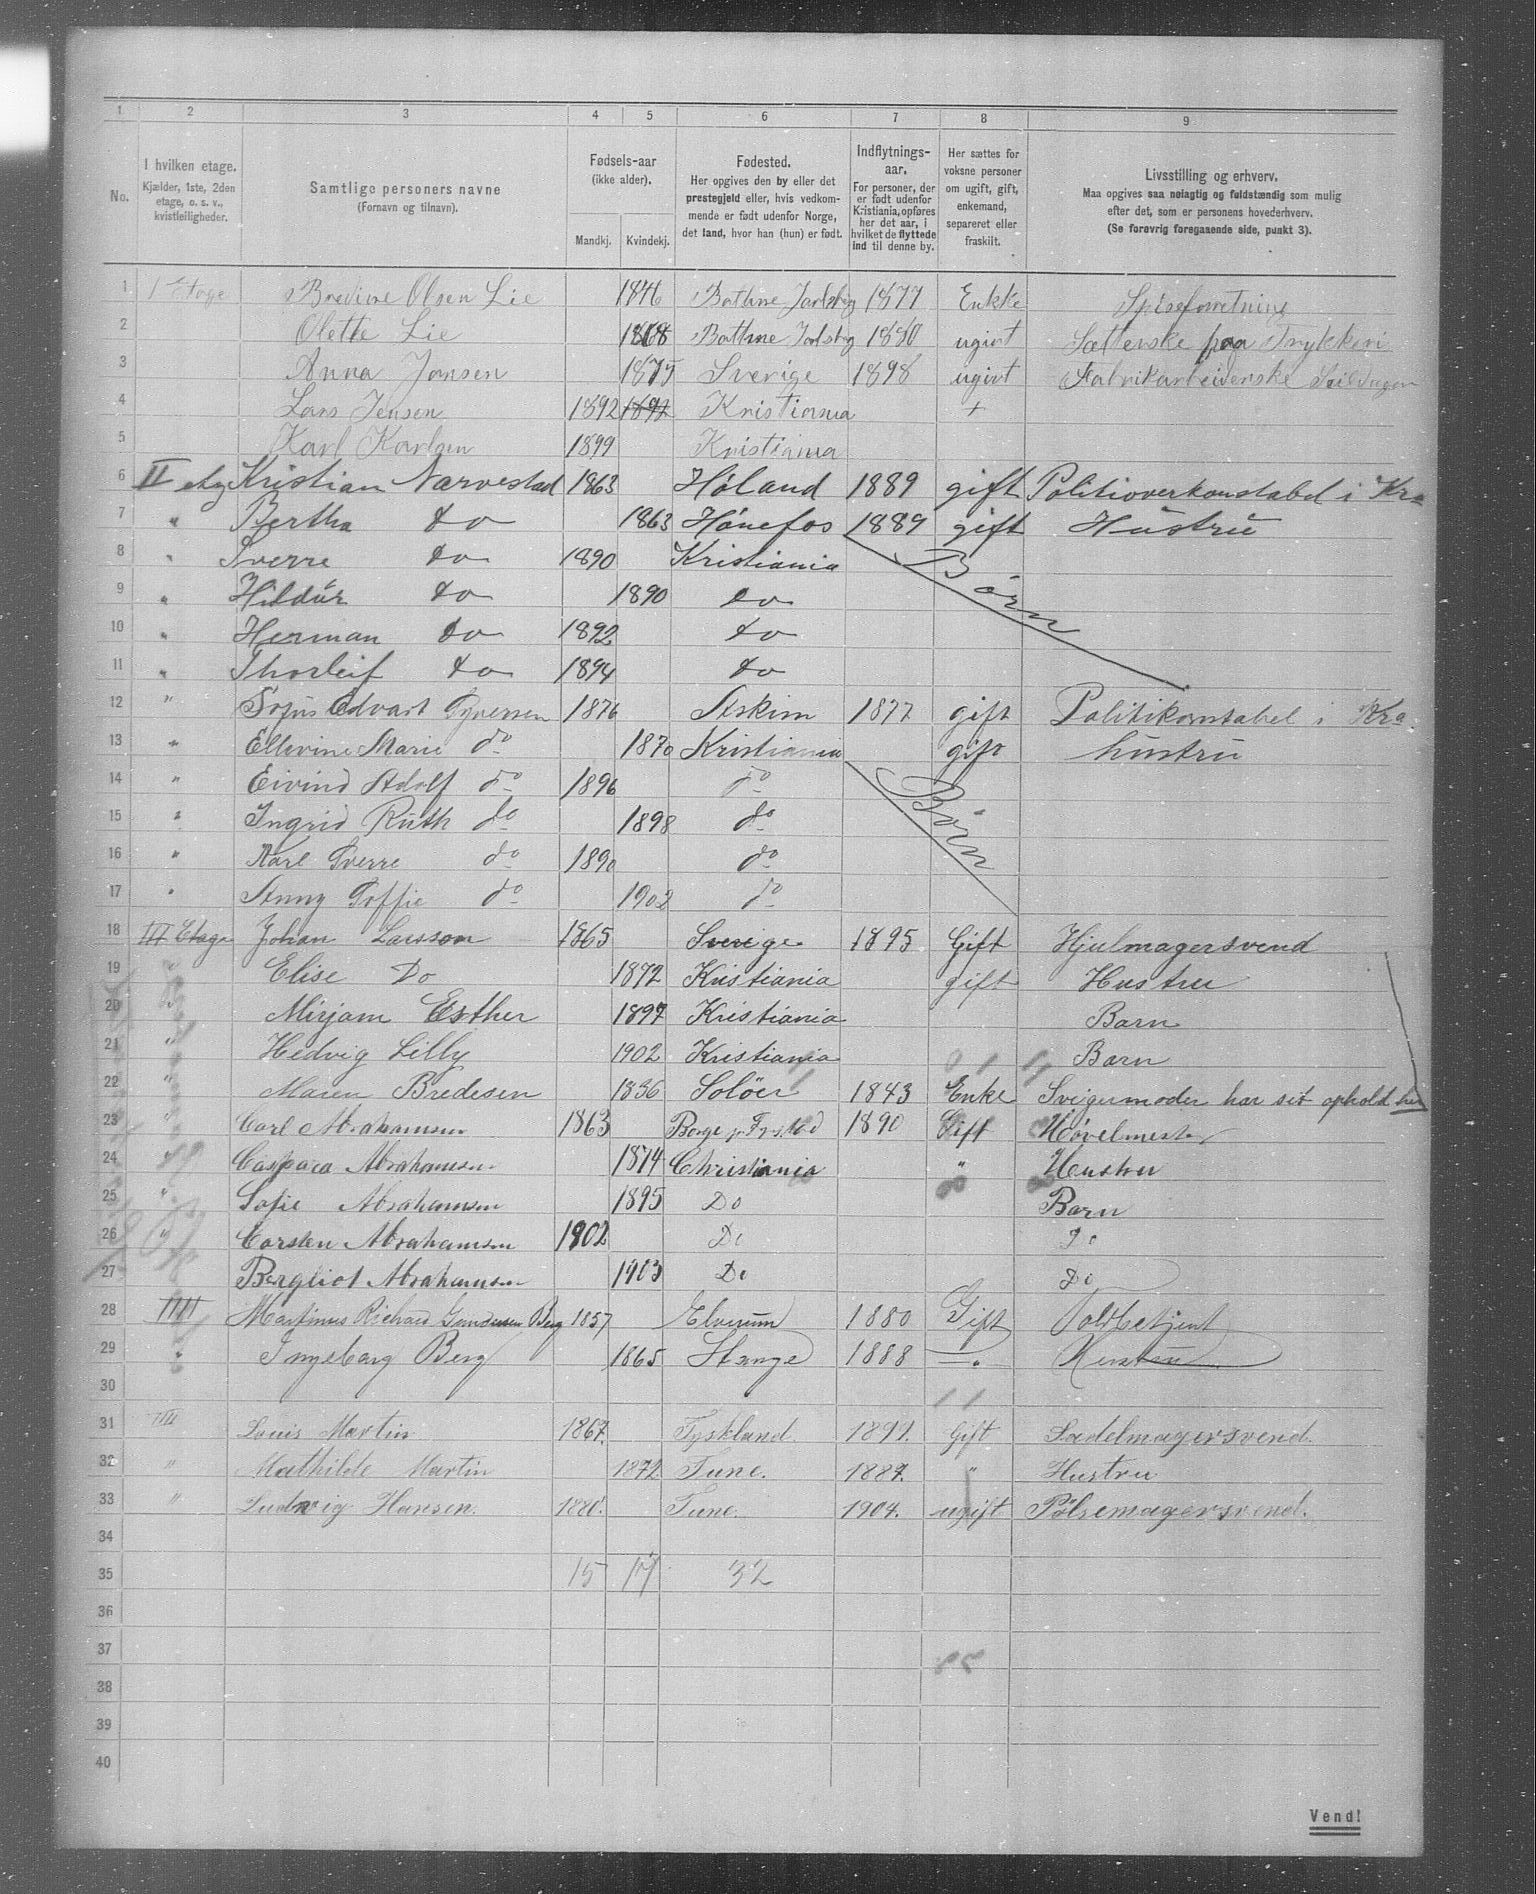 1 2 3 4 5 6 7 8 9
No.
I hvilken etage.
Kjælder, 1ste, 2den
etage, o. s. v.,
kvistleiligheder.
Samtlige personers navne
(Fornavn og tilnavn).
Fødsels-aar
(ikke alder).
Mandkj. Kvindekj.
Fødested.
Her opgives den by eller det
prestegjeld eller, hvis vedkom-
mende er født udenfor Norge,
det land, hvor han (hun) er født.
Indflytnings-
aar.
For personer, der
er født udenfor
Kristiania, opføres
her det aar, i
hvilket de flyttede
ind til denne by.
Her sættes for
voksne personer
om ugift, gift,
enkemand,
separeret eller
fraskilt.
Livsstilling og erhverv.
Maa opgives saa nøiagtig og fuldstændig som mulig
efter det, som er personens hovederhverv.
(Se forøvrig foregaaende side, punkt 3).
1 1 Etage Bredine Olsen Lie 1846 Bothne Jarlsbg 1877 Enkke Spiseforretning
2 Olette Lie 1868 Bothne Jarlsbg 1880 ugivt Sætterske paa Trykkeri
3 Anna Jansen 1875 Sverige 1898 ugivt Fabrikarbeiderske
4 Lars Jensen 1892 1892 Kristiania +
5 Karl Karlsen 1899 Kristiania
6 II etg Kristian Narvestad 1863 Høland 1889 gift Politioverkonstabel i Kra
7 " Bertha do 1863 Hønefos 1889 gift Hustru
8 " Sverre do 1890 Kristiania Børn
9 " Hildur do 1890 do
10 " Herman do 1892 do
11 " Thorleif do 1894 do
12 " Sofus Edvart Syversen 1876 Askim 1877 gift Politikonstabel i Kra.
13 " Ellevine Marie do 1870 Kristiania gift hustru
14 " Eivind Adolf do 1896 do Børn
15 " Ingrid Ruth do 1898 do
16 " Karl Sverre do 1890 do
17 " Anny Soffie do 1902 do
18 III Etage Johan Larsson 1865 Sverige 1895 Gift Hjulmagersvend
19 " Elise Do 1872 Kristiania gift Hustru
20 " Mirjam Esther 1897 Kristiania Barn
21 " Hedvig Lilly 1902 Kristiania Barn
22 " Maren Bredesen 1836 Solöer 1843 Enke Svigermoder har sit ophold her
23 " Carl Abrahamsen 1863 Borge pr Fr.stad 1890 Gift Høvelmester
24 " Caspara Abrahamsen 1874 Christiania " Hustru
25 " Sofie Abrahamsen 1895 Do Barn
26 " Carsten Abrahamsen 1902 Do Do
27 Bergliot Abrahamsen 1903 Do Do
28 IIII Martinus Richard Gundersen Berg 1857 Elverum 1880 Gift Toldbetjent
29 " Ingeborg Berg 1865 Stange 1888 —"— Hustru
30
31 IIII Louis Martin 1867. Tyskland. 1891. Gift Sadelmagersvend.
32 " Mathilde Martin 1872. Tune. 1887. " Hustru
33 " Ludvig Hansen. 1880. Tune. 1904. ugift Pölsemagersvend.
34
35 15 17 32
36
37
38
39
40
Vend!